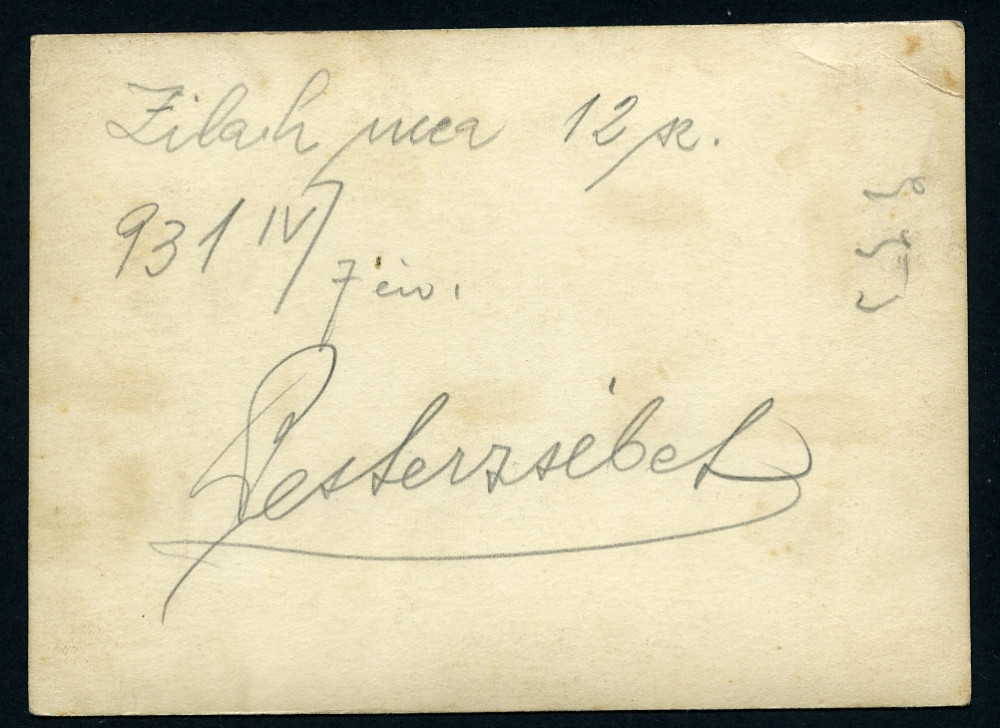 Zilah ucca 12 sz.
931 IV/7
7 én.
Pesterzsébet